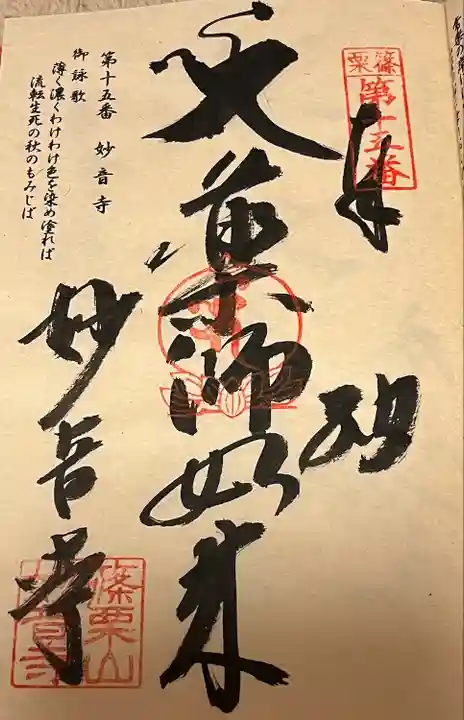 篠栗
第十五番
奉拝
薬師如来
妙音寺
第十五番 妙音寺
御詠歌
薄く濃くわけわけ色を染め塗れば
流転生死の秋のもみじば
篠栗山
妙音寺